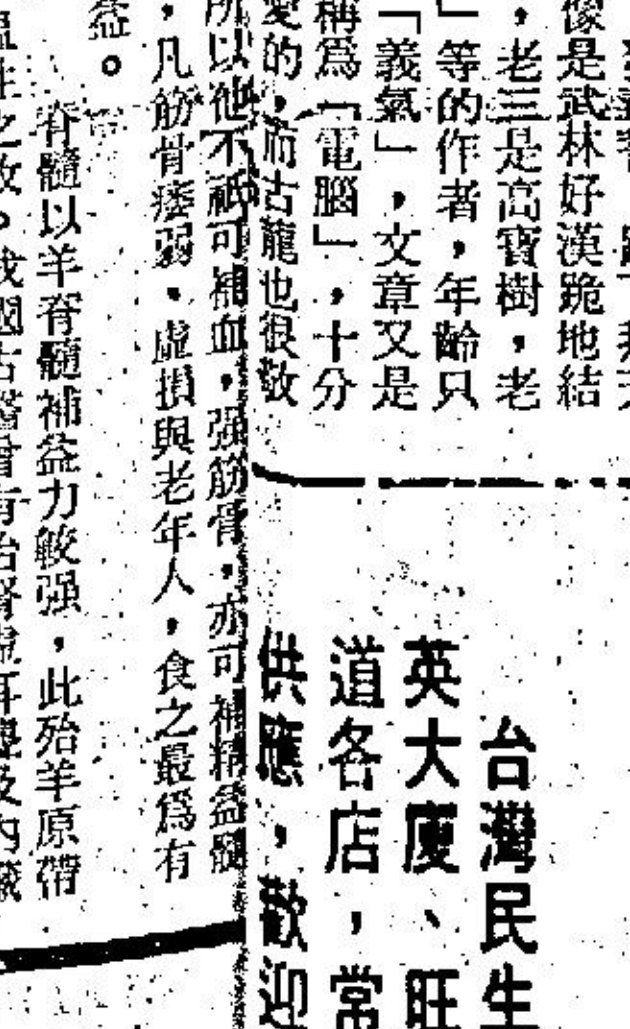 像是武林好漢跪地結
，老三是高寶樹，老
」等的作者，年齡只
「義氣」，文章又是
稱爲「電腦」，十分
愛的，而古龍也很敬
台灣民生
英大廈、旺
道各店，常
供應，歡迎
所以他不祇可補血，强筋骨，亦可補精益髓
，凡筋骨痿弱，虛損與老年人，食之最爲有
益。
脊髓以羊脊髓補益力較强，此殆羊原帶